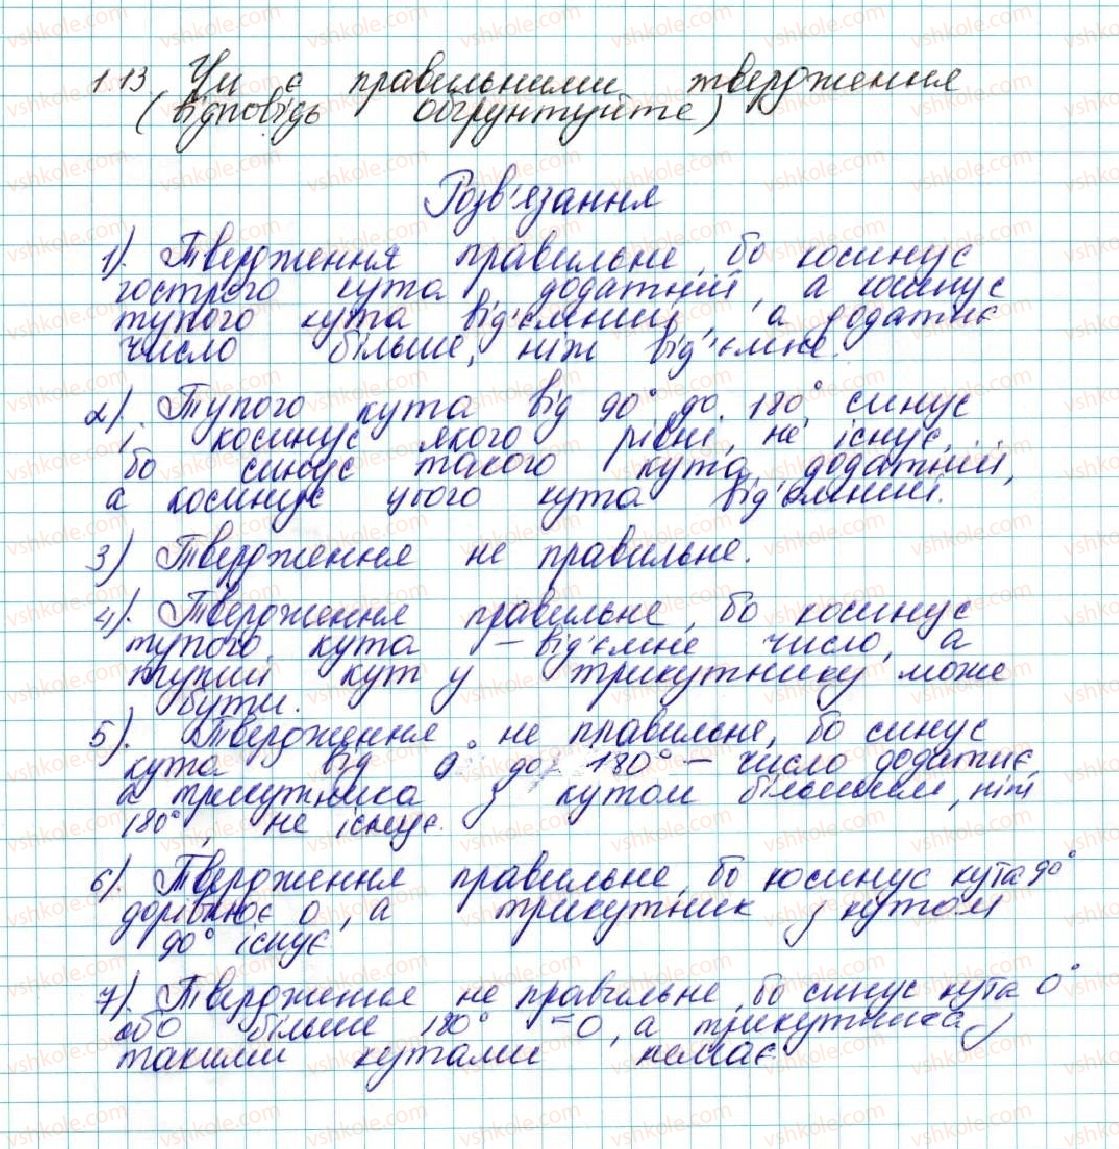 1.13 Чи є правильними твердження
(відповідь обґрунтуйте)
Розв'язання
1). Твердження правильне, бо косинус
гострого кута додатній, а косинус
тупого кута від'ємний, а додатнє
число більше, ніж від'ємне.
2). Тупого кута від 90° до 180° синус
і косинус якого рівні, не існує,
бо синус такого кута додатній,
а косинус цього кута від'ємний.
3) Твердження не правильне.
4). Твердження правильне, бо косинус
тупого кута – від'ємне число, а
тупий кут у трикутнику може
бути.
5). Твердження не правильне, бо синус
кута від 0° до 180° – число додатнє,
а трикутника з кутом більшим, ніж
180°, не існує.
6). Твердження правильне, бо косинус кута 90°
дорівнює 0, а трикутник з кутом
90° існує
7). Твердження не правильне, бо синус кута 0°
або більше 180° = 0, а трикутника з
такими кутами немає